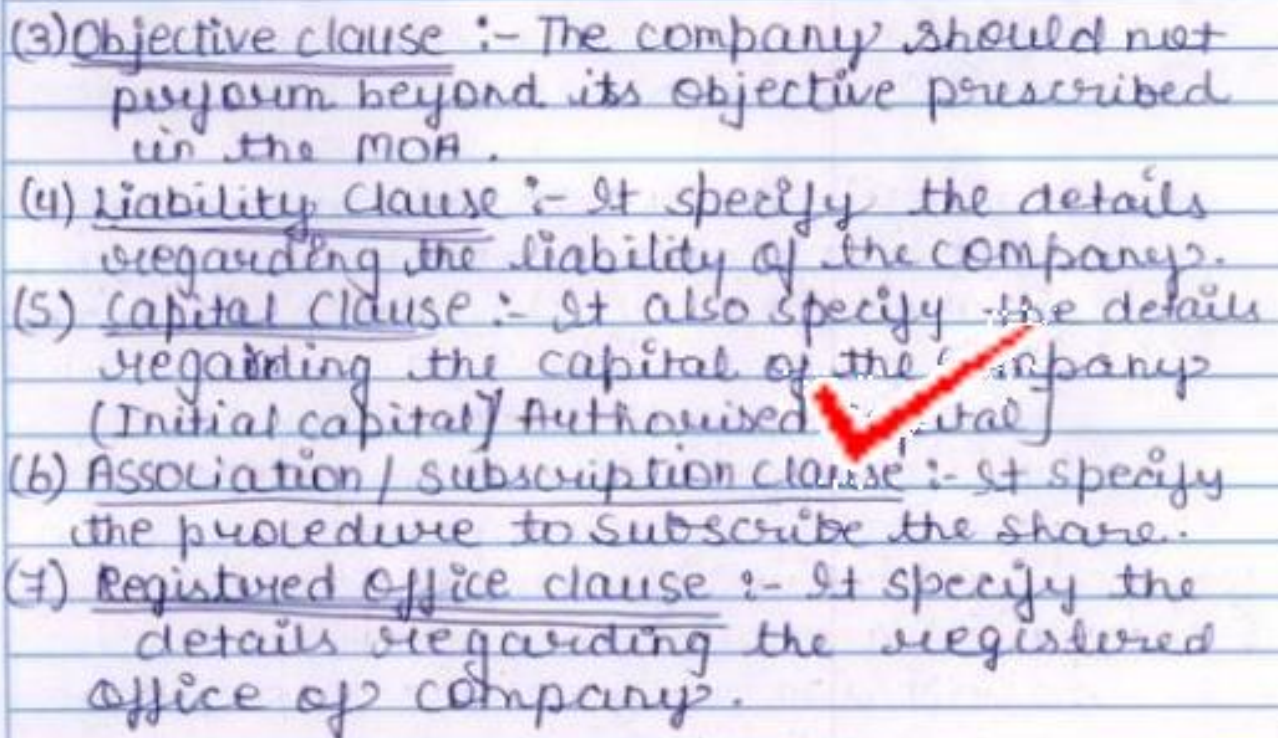 (3) Objective clause :- The company should not
perform beyond its objective prescribed
in the MOA.
(4) Liability Clause :- It specify the details
regarding the liability of the company.
(5) Capital Clause :- It also specify the details
regarding the capital of the company
(Initial capital] Authorised capital]
(6) Association / Subscription clause :- It specify
the procedure to subscribe the share.
(7) Registered office clause :- It specify the
details regarding the registered
office of company.